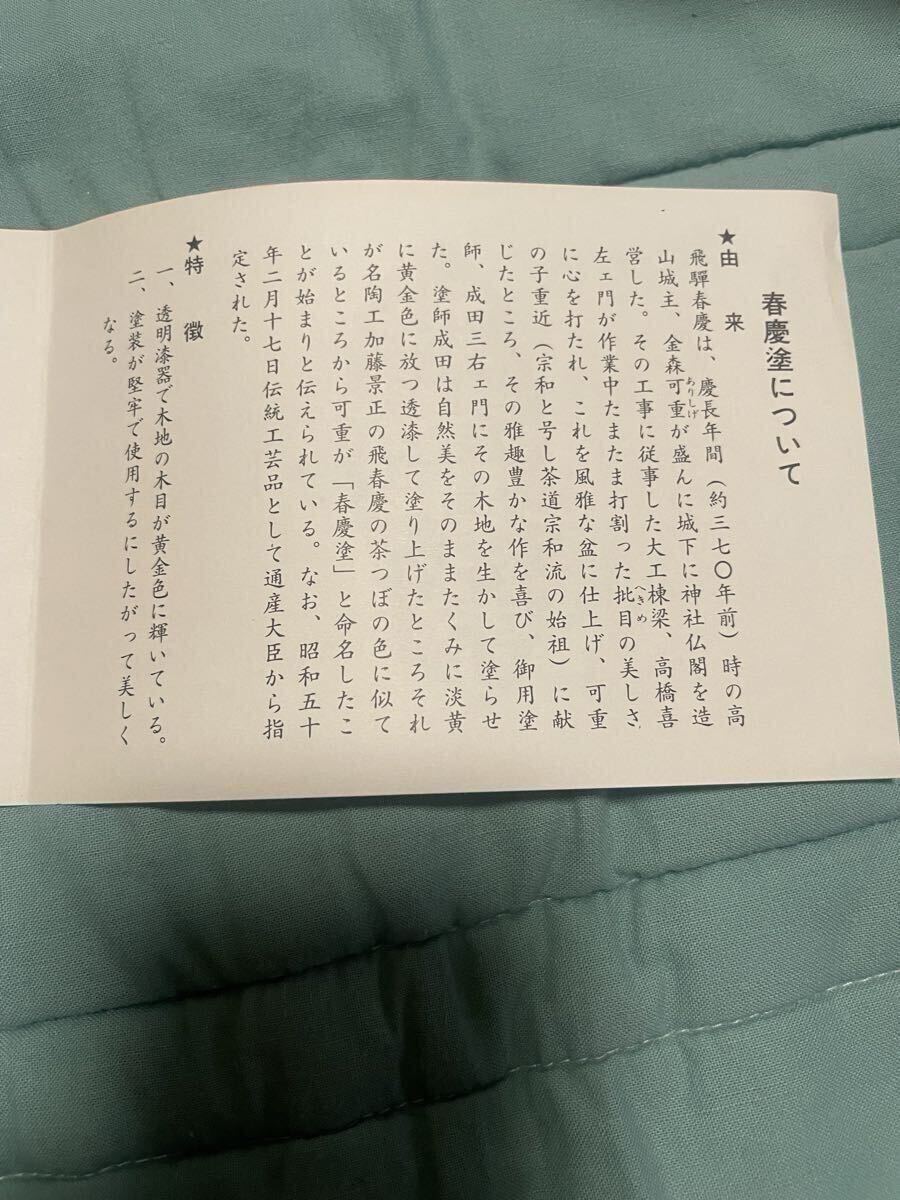 春慶塗について
★由来
飛騨春慶は、慶長年間（約三七〇年前）時の高
山城主、金森可重が盛んに城下に神社仏閣を造
ありしげ
営した。その工事に従事した大工棟梁、高橋喜
左ェ門が作業中たまたま打割った批目の美しさ
へきめ
に心を打たれ、これを風雅な盆に仕上げ、可重
の子重近（宗和と号し茶道宗和流の始祖）に献
じたところ、その雅趣豊かな作を喜び、御用塗
師、成田三右ェ門にその木地を生かして塗らせ
た。塗師成田は自然美をそのままたくみに淡黄
に黄金色に放つ透漆して塗り上げたところそれ
が名陶工加藤景正の飛春慶の茶つぼの色に似て
いるところから可重が「春慶塗」と命名したこ
とが始まりと伝えられている。なお、昭和五十
年二月十七日伝統工芸品として通産大臣から指
定された。
★特徴
一、透明漆器で木地の木目が黄金色に輝いている。
二、塗装が堅牢で使用するにしたがって美しく
なる。